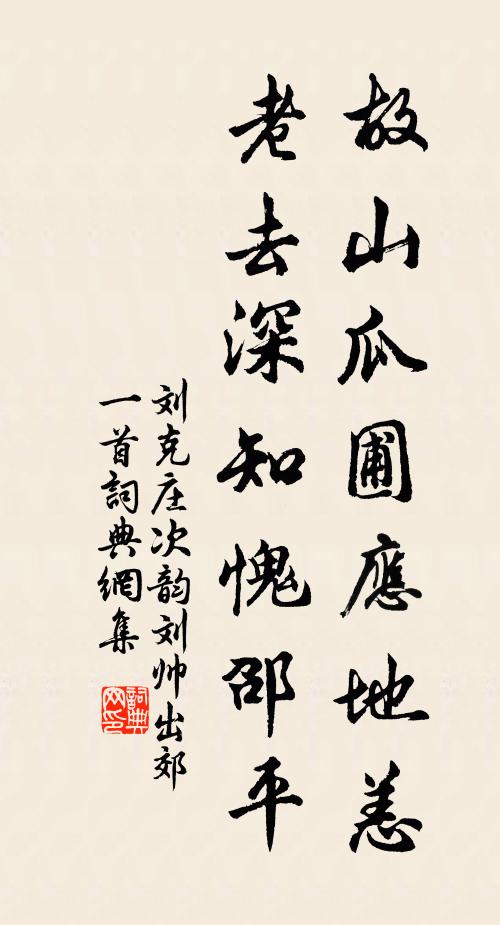 故山瓜圃應地恙
老去深知愧邵平
刘克庄次韵刘帅出郊
一首詞典網集
詞典
网印